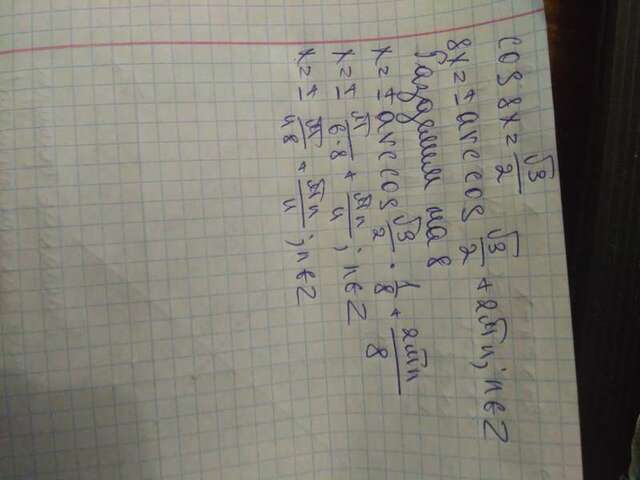 cos 8x = √3/2
8x = ± arccos √3/2 + 2πn; n∈Z
Разделим на 8
x = ± arccos √3/2 · 1/8 + 2πn/8
x = ± π/6·8 + πn/4; n∈Z
x = ± π/48 + πn/4; n∈Z